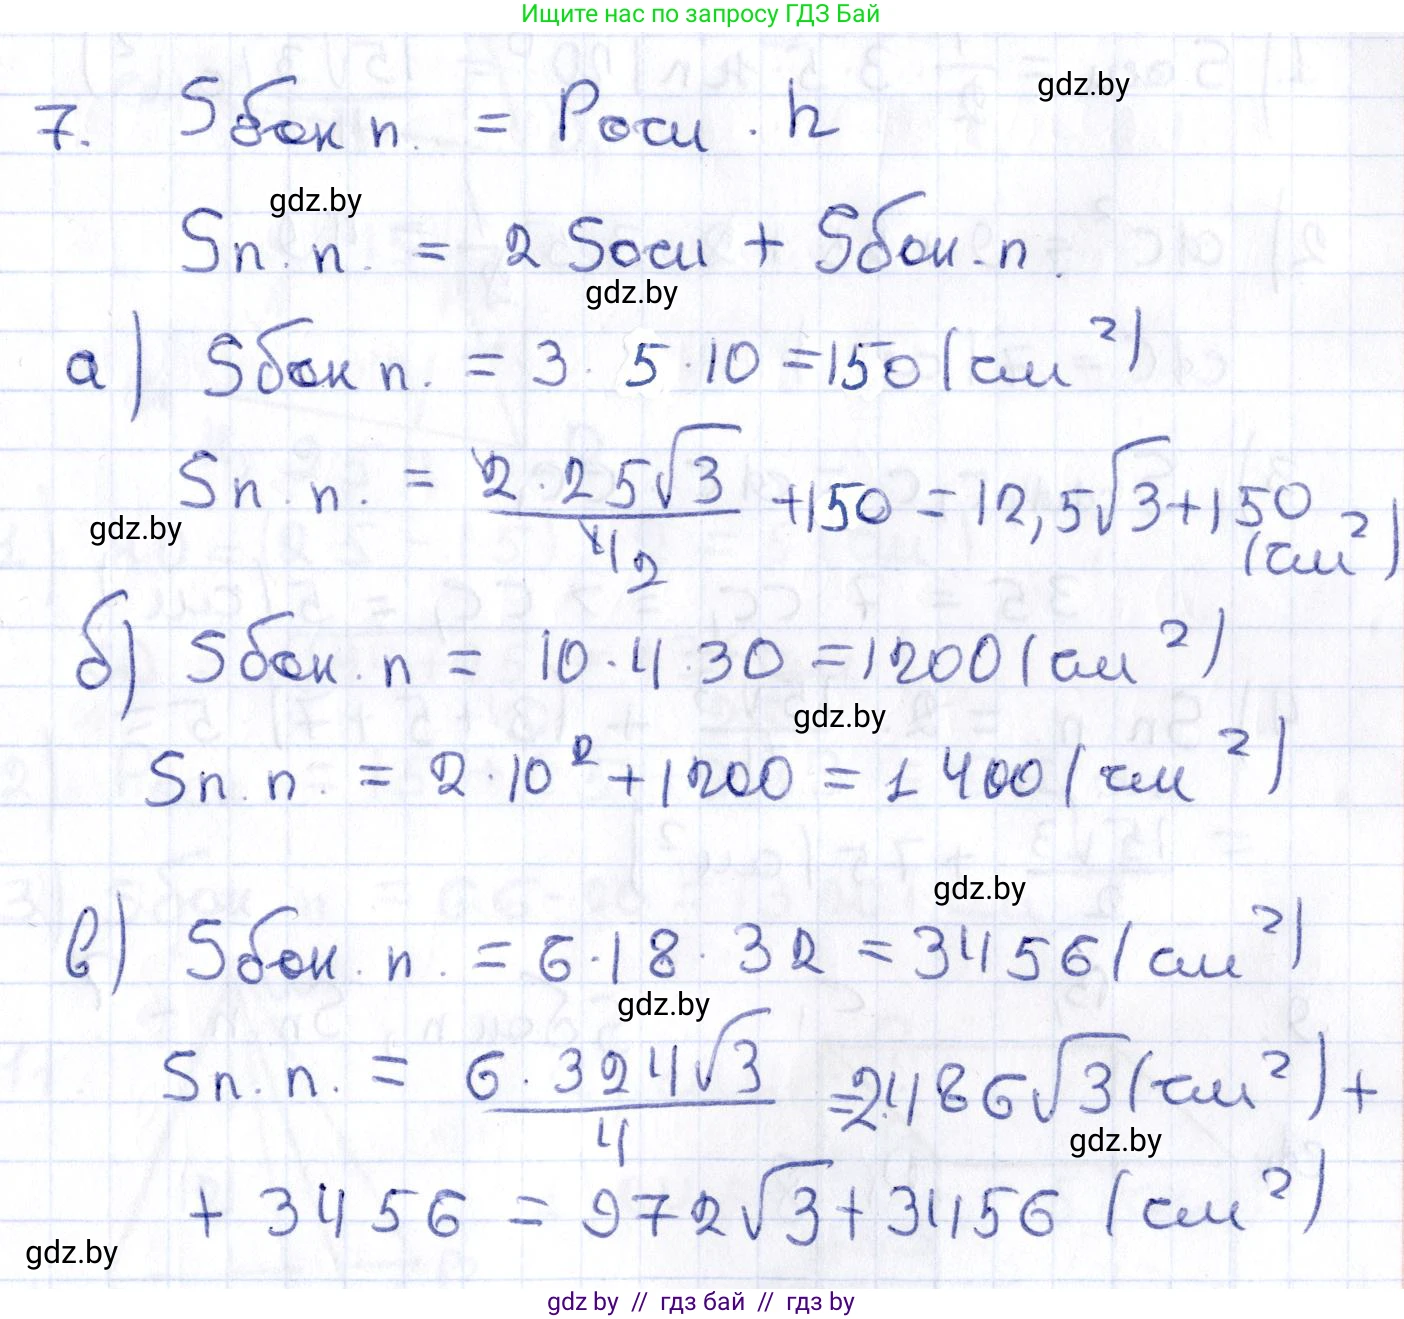 Ищите нас по запросу ГДЗ Бай
7. Sбок п. = Pосн · h
gdz.by
gdz.by
Sп.п. = 2 Sосн + Sбок.п.
gdz.by
а) Sбок п. = 3 · 5 · 10 = 150 (см²)
Sп.п. = 2·25√3/4 2 + 150 = 12,5√3 + 150 (см²)
gdz.by
б) Sбок.п = 10·4·30 = 1200 (см²)
gdz.by
Sп.п. = 2·10² + 1200 = 1400 (см²)
gdz.by
в) Sбок.п. = 6·18·32 = 3456 (см²)
gdz.by
Sп.п. = 6·324√3/4 = 2·486√3 (см²) +
gdz.by
+ 3456 = 972√3 + 3456 (см²)
gdz.by
gdz by // гдз бай // гдз by